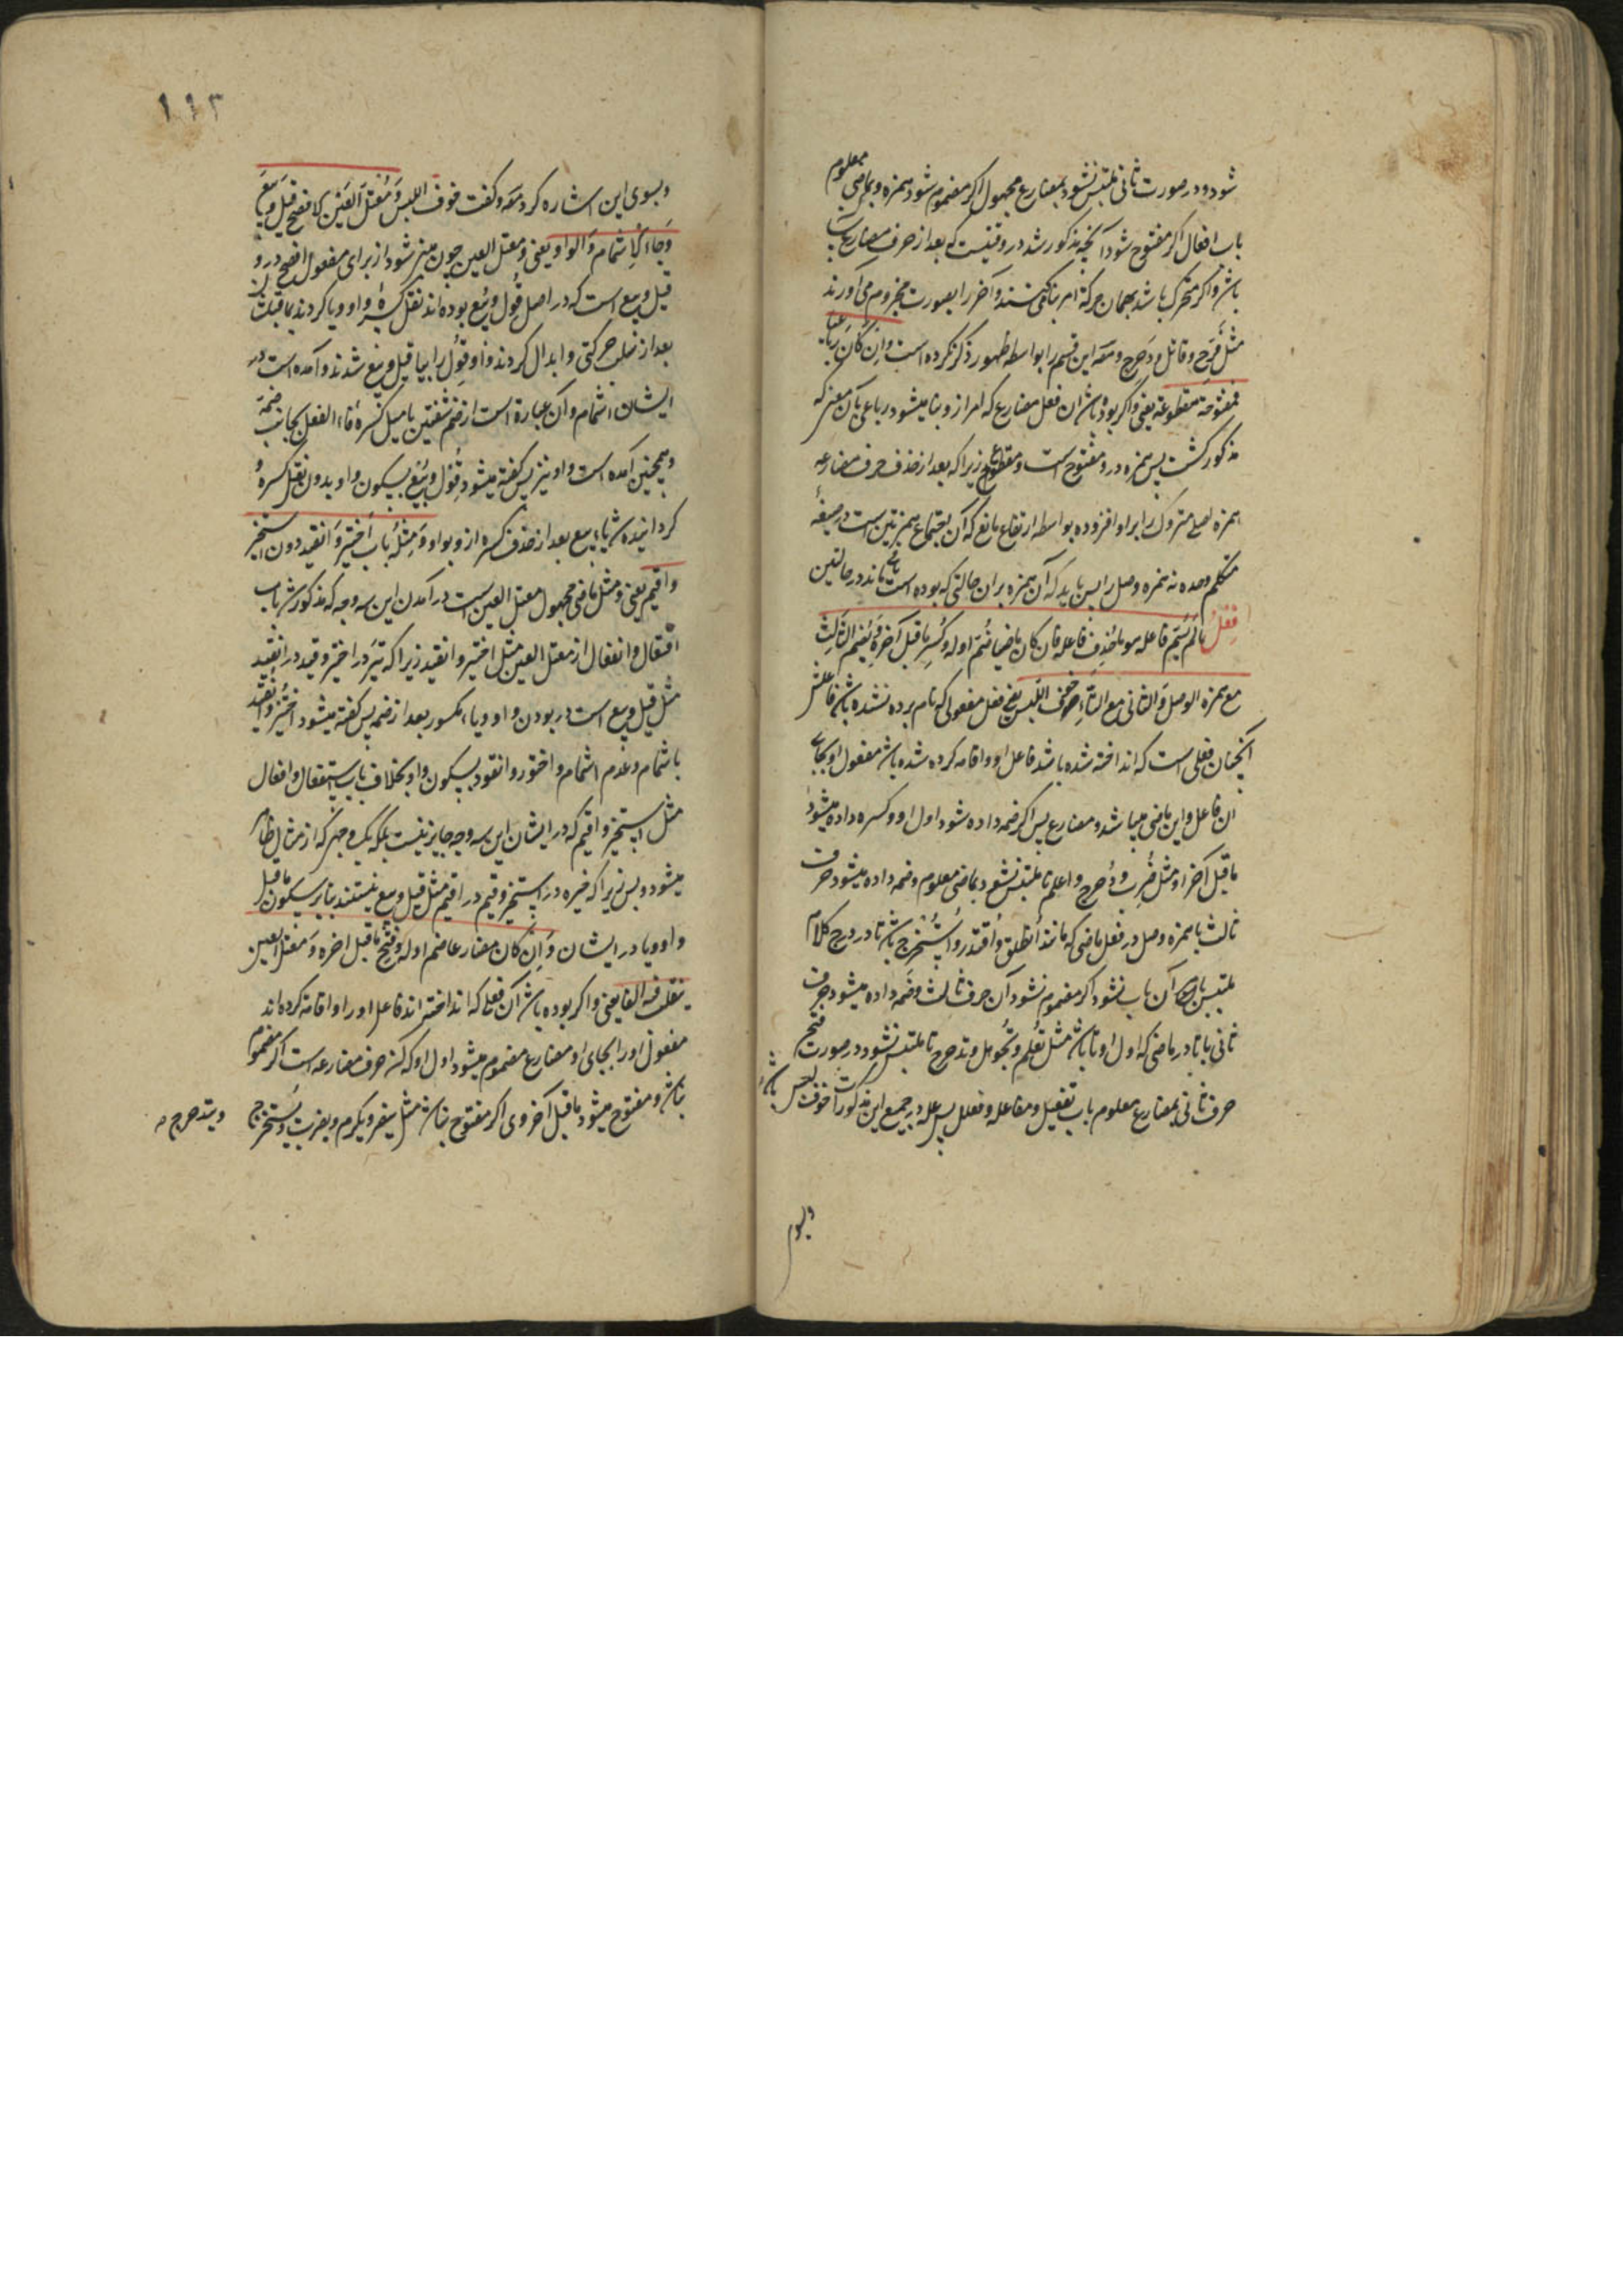 شود و در صورت ثانی ملتبس نشود بمضارع مجهول اکر مضموم شود همزه و بماضی معلوم
باب افعال اکر مفتوح شود آنچه مذکور شد در وقتیست که بعد از حرف مضارع ساکن
باشد و اکر متحرک باشد بهمان حرکة امر بنا کنند و آخر را بصورت مجزوم می آورند
مثل فرّح و قاتل و دحرج و مصه این قسم را بواسطه ظهور ذکر نکرده است و ان کان رباعیا
فمفتوحة مقطوعة یعنی و اکر بوده باشد ان فعل مضارع که امر از و بنا میشود رباعی بآن معنی که
مذکور کشت پس همزه درو مفتوح است و مقطوع زیرا که بعد از حذف حرف مضارعه
همزه اصلی متروک را براو افزوده بواسطه ارتفاع مانع که آن اجتماع همزتین است در صیغه
متکلم وحده نه همزه وصل را پس باید که آن همزه بران حالتی که بوده است باقی ماند در حالتین
فعل ما لم یسم فاعله هو ما حذف فاعله فان کان ماضیا ضم اوله و کسر ما قبل آخره و یضم الثالث
مع همزه الوصل و الثانی مع التاء خوف اللبس یعنی فعل مفعولی که نام برده نشده باشد فاعلش
آنچنان فعلی است که انداخته شده باشد فاعل او و اقامه کرده شده باشد مفعول او بجای
ان فاعل و این ماضی میباشد و مضارع پس اکر ضمه داده شود اول او و کسره داده میشود
ما قبل آخر او مثل ضرب و دحرج و اعلم تا ملتبس نشود بماضی معلوم و ضمه داده میشود حرف
ثالث با همزه وصل در فعل ماضی که مانند انطلق و اقتدر و استخرج باشد تا در درج کلام
ملتبس بامر آن باب نشود اکر مضموم نشود آن حرف ثالث و ضمه داده میشود حرف
ثانی با تا در ماضی که اول او تا باشد مثل تعلم و تجوهل و تدحرج تا ملتبس نشود در صورت فتح
حرف ثانی بمضارع معلوم باب تفعیل و مفاعله و فعلل پس علة در جمیع این مذکورات خوف لبس باشد
وبسوی
وبسوی این اشاره کرد مصه و کفت خوف اللبس و معتل العین الافصح قیل و بیع
و جاء الاشمام و الواو یعنی و معتل العین چون مبنی شود از برای مفعول افصح درو
قیل و بیع است که در اصل قول و بیع بوده اند نقل کسره واو و یا کردند بما قبلشان
بعد از سلب حرکتی و ابدال کردند واو قول را بیا قیل و بیع شدند و آمده است در
ایشان اشمام و آن عبارة است از ضم شفتین با میل کسره فاء الفعل بجانب ضمه
و همچنین آمده است واو نیز پس کفته میشود قول و بوع بسکون واو بدون نقل کسره و
کردانیده شد یاء بیع بعد از حذف کسره ازو بواو و مثله باب اختیر و انقید دون استخیر
و اقیم یعنی و مثل ماضی مجهول معتل العین است در آمدن این سه وجه که مذکور شد باب
افتعال و انفعال از معتل العین مثل اختیر و انقید زیرا که تیر در اختیر و قید در انقید
مثل قیل و بیع است در بودن واو و یاء مکسور بعد از ضمه پس کفته میشود اختیر و انقید
باشمام و عدم اشمام و اختور و انقود بسکون واو بخلاف باب استفعال و افعال
مثل استخیر و اقیم که در ایشان این سه وجه جایز نیست بلکه یک وجهی که از مثال ظاهر
میشود و بس زیرا که خیره در استخیر و قیم در اقیم مثل قیل و بیع نیستند بنابر سکون ما قبل
واو و یا در ایشان و ان کان مضارعا ضم اوله و فتح ما قبل اخره و معتل العین
ینقلب فیه الفا یعنی و اکر بوده باشد آن فعلی که انداخته اند فاعل او را و اقامه کرده اند
مفعول او را بجای او مضارع مضموم میشود اول او که آن حرف مضارعه است اکر مضموم
نباشد و مفتوح میشود ما قبل آخر وی اکر مفتوح نباشد مثل ینصر و یکرم و یضرب و یستخرج
و یتدحرج
١١٣